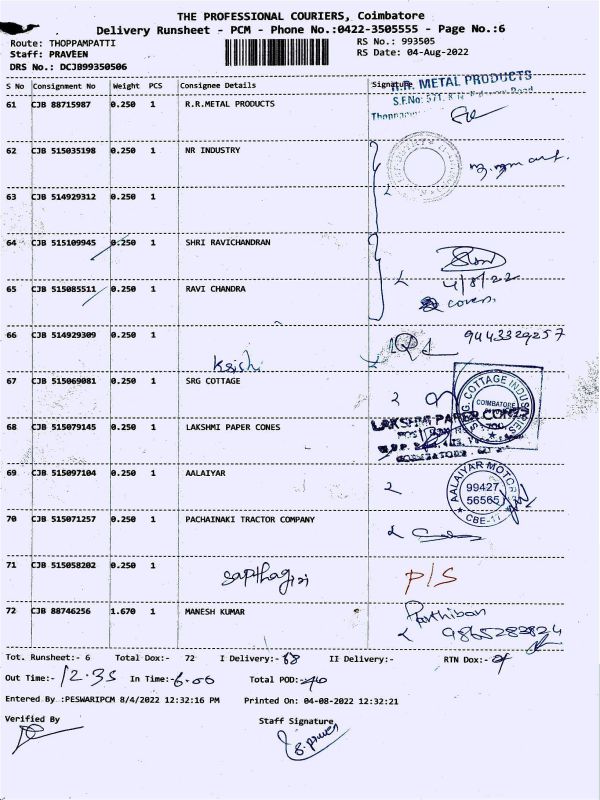 THE PROFESSIONAL COURIERS, Coimbatore
Delivery Runsheet - PCM - Phone No.:0422-3505555 - Page No.:6
Route: THOPPAMPATTI RS No.: 993505
Staff: PRAVEEN RS Date: 04-Aug-2022
DRS No.: DCJB99350506
S No Consignment No Weight PCS Consignee Details Signature
R.R. METAL PRODUCTS
S.F.No: 571,
61 CJB 88715987 0.250 1 R.R.METAL PRODUCTS
62 CJB 515035198 0.250 1 NR INDUSTRY
63 CJB 514929312 0.250 1
64 CJB 515109945 0.250 1 SHRI RAVICHANDRAN
65 CJB 515085511 0.250 1 RAVI CHANDRA 4/8/22
covers.
66 CJB 514929309 0.250 1 9443329257
67 CJB 515069081 0.250 1 SRG COTTAGE
S.R.G. COTTAGE INDUSTRIES
COIMBATORE
LAKSHMI PAPER CONES
68 CJB 515079145 0.250 1 LAKSHMI PAPER CONES
69 CJB 515097104 0.250 1 AALAIYAR 2
AALAIYAR MOTORS
99427
56565
CBE-17
70 CJB 515071257 0.250 1 PACHAINAKI TRACTOR COMPANY
71 CJB 515058202 0.250 1 Sapthagiri P/S
72 CJB 88746256 1.670 1 MANESH KUMAR Parthiban
9865283824
Tot. Runsheet:- 6 Total Dox:- 72 I Delivery:- 68 II Delivery:- RTN Dox:-
Out Time:- 12.35 In Time:- 6.00 Total POD:-
Entered By :PESWARIPCM 8/4/2022 12:32:16 PM Printed On: 04-08-2022 12:32:21
Verified By Staff Signature